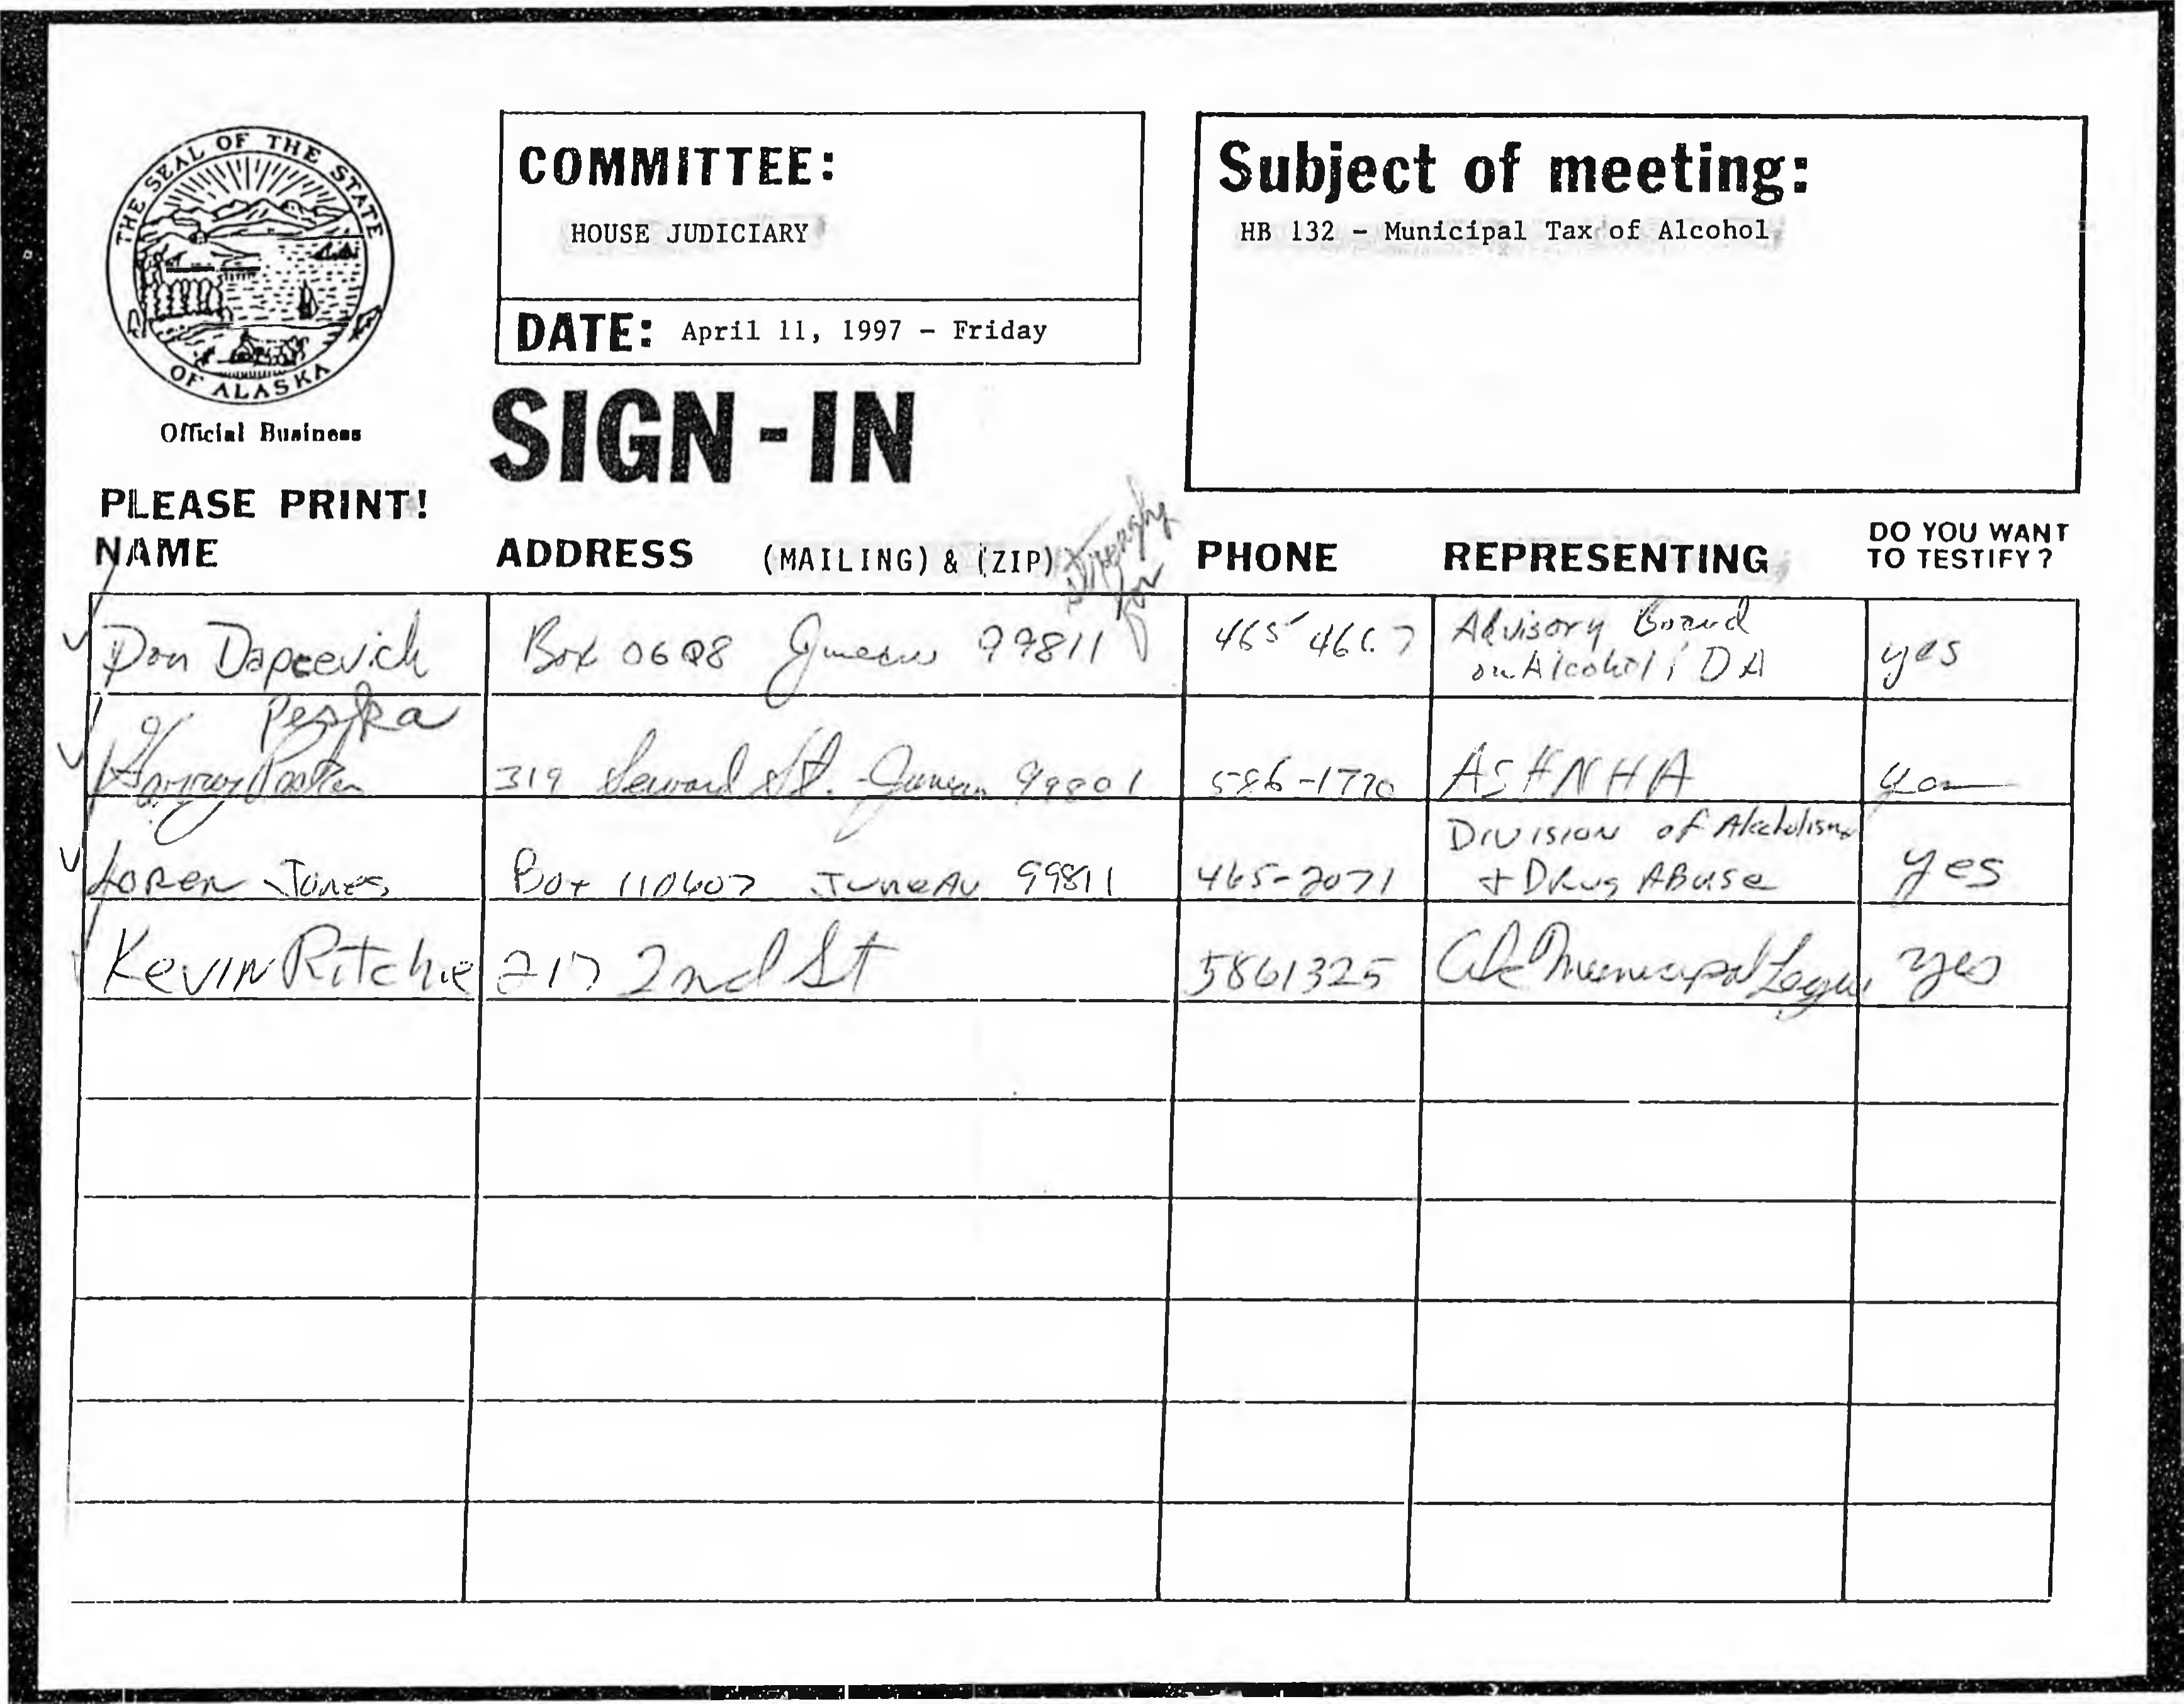 THE SEAL OF THE STATE
OF ALASKA
Official Business
COMMITTEE:
HOUSE JUDICIARY
DATE: April 11, 1997 - Friday
Subject of meeting:
HB 132 - Municipal Tax of Alcohol
SIGN-IN
PLEASE PRINT!
strongly
for
NAME ADDRESS (MAILING) & (ZIP) PHONE REPRESENTING DO YOU WANT
TO TESTIFY?
Don Dapcevich Box 0608 Juneau 99811 465 4667 Advisory Board
on Alcohol DA yes
319 Seward St. - Juneau 99801 586-1770 ASHNHA yes
LOREN JONES Box 110607 JUNEAU 99811 465-2071 DIVISION of Alcoholism
+ Drug Abuse yes
KEVIN Ritchie 217 2nd St 5861325 Municipal yes